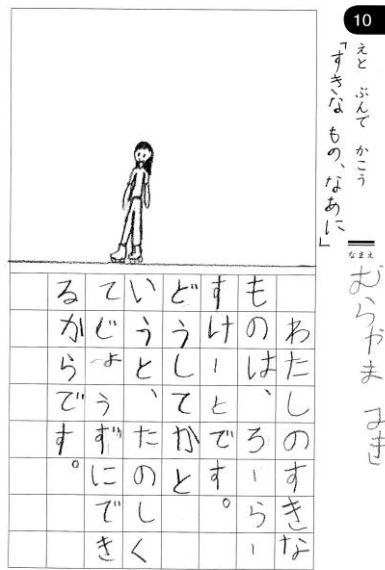 10
えと ぶんで かこう
「すきな もの、なあに」
なまえ
むらやま
わたしのすきな
ものは、ろーらー
すけーとです。
どうしてかと
いうと、たのしく
てじょうずにでき
るからです。